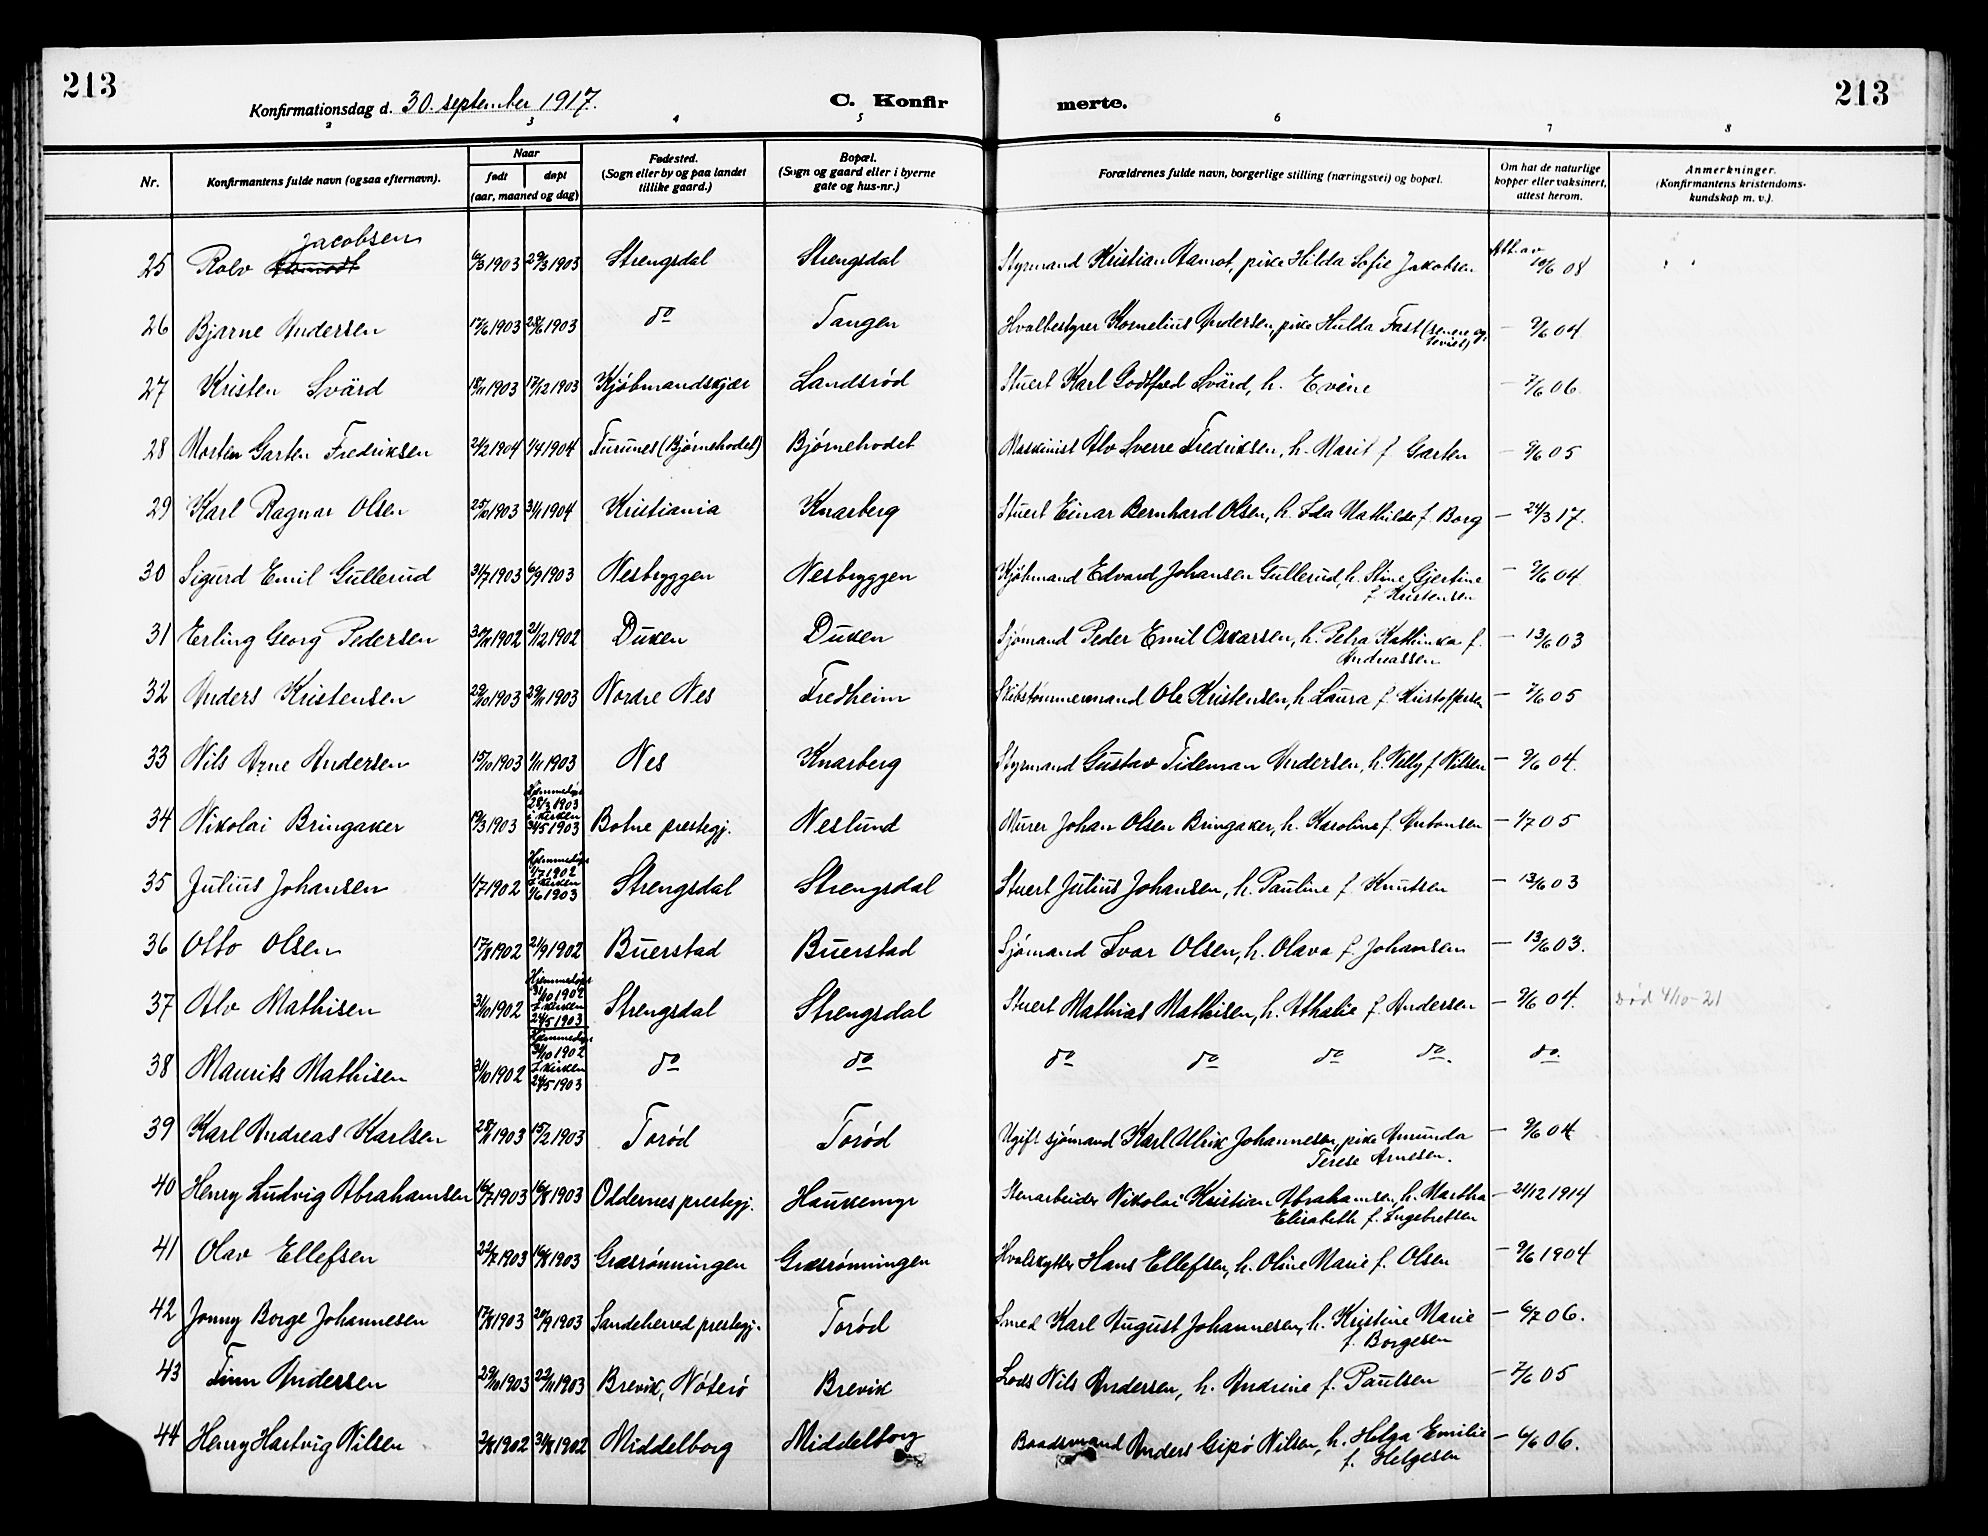 213
Konfirmationsdag d. 30. september 1917.
C. Konfir
merte.
213
2 3 4 5 6 7 8
Nr.
Konfirmantens fulde navn (ogsaa efternavn).
Naar
født
døpt
(aar, maaned og dag)
Fødested.
(Sogn eller by og paa landet
tillike gaard.)
Bopæl.
(Sogn og gaard eller i byerne
gate og hus-nr.)
Forældrenes fulde navn, borgerlige stilling (næringsvei) og bopæl.
Om hat de naturlige
kopper eller vaksinert,
attest herom.
Anmerkninger.
(Konfirmantens kristendoms-
kundskap m. v.).
Jacobsen
25 Rolv 6/3 1903 29/3 1903 Strengsdal Strengsdal Styrmand Kristian Aamot, pike Hilda Sofie Jakobsen Att. av 10/6 08
26 Bjarne Andersen 17/6 1903 28/6 1903 do Tangen Hvalbestyrer Kornelius Andersen, pike Hulda Fast (senere eg.
tevist) - 9/6 04
27 Kristen Svärd 18/11 1903 17/12 1903 Kjøbmandskjær Landsrød Stuert Karl Godtfred Svärd, h. Evine - 7/6 06
28 Morten Garten Fredriksen 24/2 1904 1/4 1904 Furunes (Bjørnehodet) Bjørnehodet Maskinist Alv Sverre Fredriksen, h. Marit f. Garten - 9/6 05
29 Karl Ragnar Olsen 25/10 1903 3/1 1904 Kristiania Knarberg Stuert Einar Bernhard Olsen, h. Ida Mathilde f. Borg - 24/3 17.
30 Sigurd Emil Gullerud 31/7 1903 6/9 1903 Nesbryggen Nesbryggen Kjøbmand Edvard Johansen Gullerud, h. Stine Gjertine
f. Kristensen - 9/6 04
31 Erling Georg Pedersen 30/11 1902 21/12 1902 Duken Duken Sjømand Peder Emil Oskarsen, h. Petra Kathinka f.
Andreassen - 13/6 03
32 Anders Kristensen 29/10 1903 29/11 1903 Nordre Nes Fredheim Skibstømmermand Ole Kristensen, h. Laura f. Kristoffersen - 7/6 05
33 Nils Arne Andersen 15/10 1903 1/11 1903 Nes Knarberg Styrmand Gustav Tideman Andersen, h. Nelly f. Nilsen - 9/6 04.
34 Nikolai Bringaker 19/3 1903 Hjemmedøpt
28/3 1903
i kirken
31/5 1903 Botne prestegj. Neslund Murer Johan Olsen Bringaker, h. Karoline f. Antonsen - 1/7 05
35 Julius Johansen 1/7 1902 Hjemmedøpt
1/7 1902
I kirken
1/6 1903 Strengsdal Strengsdal Stuert Julius Johansen, h. Pauline f. Knutsen - 13/6 03
36 Otto Olsen 17/8 1902 21/9 1902 Buerstad Buerstad Sjømand Ivar Olsen, h. Olava f. Johansen - 13/6 03.
37 Alv Mathisen 31/10 1902 Hjemmedøpt
31/10 1902
I kirken
24/5 1903 Strengsdal Strengsdal Stuert Mathias Mathisen, h. Athalie f. Andersen - 9/6 04. Død 4/10-21
38 Maurits Mathisen 31/10 1902 Hjemmedøpt
31/10 1902
I kirken
24/5 1903 do do do do do do. do.
39 Karl Andreas Karlsen 28/1 1903 15/2 1903 Torød Torød Ugift sjømand Karl Ulrik Johannesen, pike Amunda
Terese Arnesen. - 9/6 04
40 Henry Ludvig Abrahamsen 16/7 1903 16/8 1903 Oddernes prestegj. Haukemyr Stenarbeider Nikolai Kristian Abrahamsen, h. Martha
Elisabeth f. Ingebretsen - 21/12 1914
41 Olav Ellefsen 22/7 1903 16/8 1903 Græsrønningen Græsrønningen Hvalskytter Hans Ellefsen, h. Oline Marie f. Olsen - 9/6 1904
42 Jonny Borge Johannesen 17/8 1903 20/9 1903 Sandeherred prestegj. Torød Smed Karl August Johannesen, h. Kristine Marie
f. Borgesen - 6/7 06.
43 Finn Andersen 29/10 1903 22/11 1903 Brevik, Nøterø Brevik Lods Nils Andersen, h. Andrine f. Paulsen - 7/6 05
44 Henry Hartvig Nilsen 2/8 1902 31/8 1902 Middelborg Middelborg Baadsmand Anders Gipø Nilsen, h. Helga Emilie
f. Helgesen - 6/6 06.